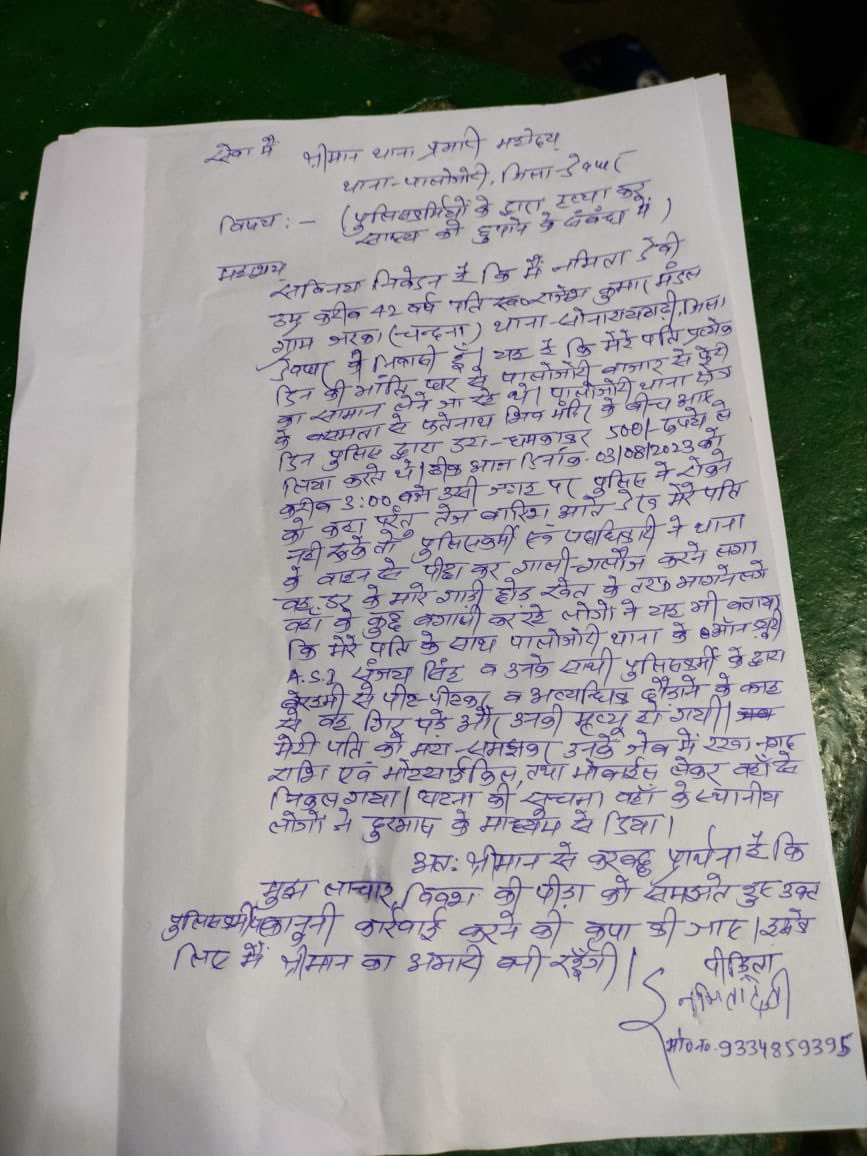 सेवा में श्रीमान थाना प्रभारी महोदय
थाना-पालोजोरी, जिला-देवघर
विषय:- (पुलिसकर्मियों के द्वारा हत्या कर
साक्ष्य को छुपाने के संबंध में)
महाशय,
सविनय निवेदन है कि मैं नमिता देवी
उम्र करीब 42 वर्ष पति स्व० राजेश कुमार मंडल
ग्राम (चन्दना) थाना-सोनारायठाढ़ी, जिला
देवघर के निवासी हूँ। यह है कि मेरे पति प्रत्येक
दिन की भाँति घर से पालोजोरी बाजार से फेरी
का सामान लेने जा रहे थे। पालोजोरी थाना क्षेत्र
के से शिव मंदिर के बीच आए
दिन पुलिस द्वारा डरा-धमकाकर 500/- रुपये ले
लिया करते थे। ठीक आज दिनांक-03/08/2023 को
करीब 3:00 बजे उसी जगह पर पुलिस ने रोकने
को कहा परंतु तेज बारिश आते देख मेरे पति
नहीं रुके तो पुलिसकर्मी एवं पदाधिकारी ने थाना
के वाहन से पीछा कर गाली-गलौज करने लगा
वह डर के मारे गाड़ी छोड़ खेत के तरफ भागने लगे
वहाँ के कुछ कर रहे लोगों ने यह भी बताया
कि मेरे पति के साथ पालोजोरी थाना के ऑन ड्यूटी
A.S.I संजय सिंह व उनके साथी पुलिसकर्मी के द्वारा
बेरहमी से पीट-पीटकर व अत्यधिक दौड़ाने के वजह
से वह गिर पड़े और उनकी मृत्यू हो गयी।
मेरी पति को मरा-समझकर उनके जेब में रखा नगद
राशि एवं मोटरसाईकिल, तथा मोबाईल लेकर वहाँ से
निकल गया। घटना की सूचना वहाँ के स्थानीय
लोगों ने दुरभाष के माध्यम से दिया।
अतः श्रीमान से करबद्ध प्रार्थना है कि
मुझ लाचार, विवश की पीड़ा को समझते हुए उक्त
पुलिसकर्मी पर कानूनी कार्रवाई करने की कृपा की जाए। इसके
लिए मैं श्रीमान का अभारी बनी रहूँगी।
पीड़िता
नमिता देवी
मो०न०-9334859395